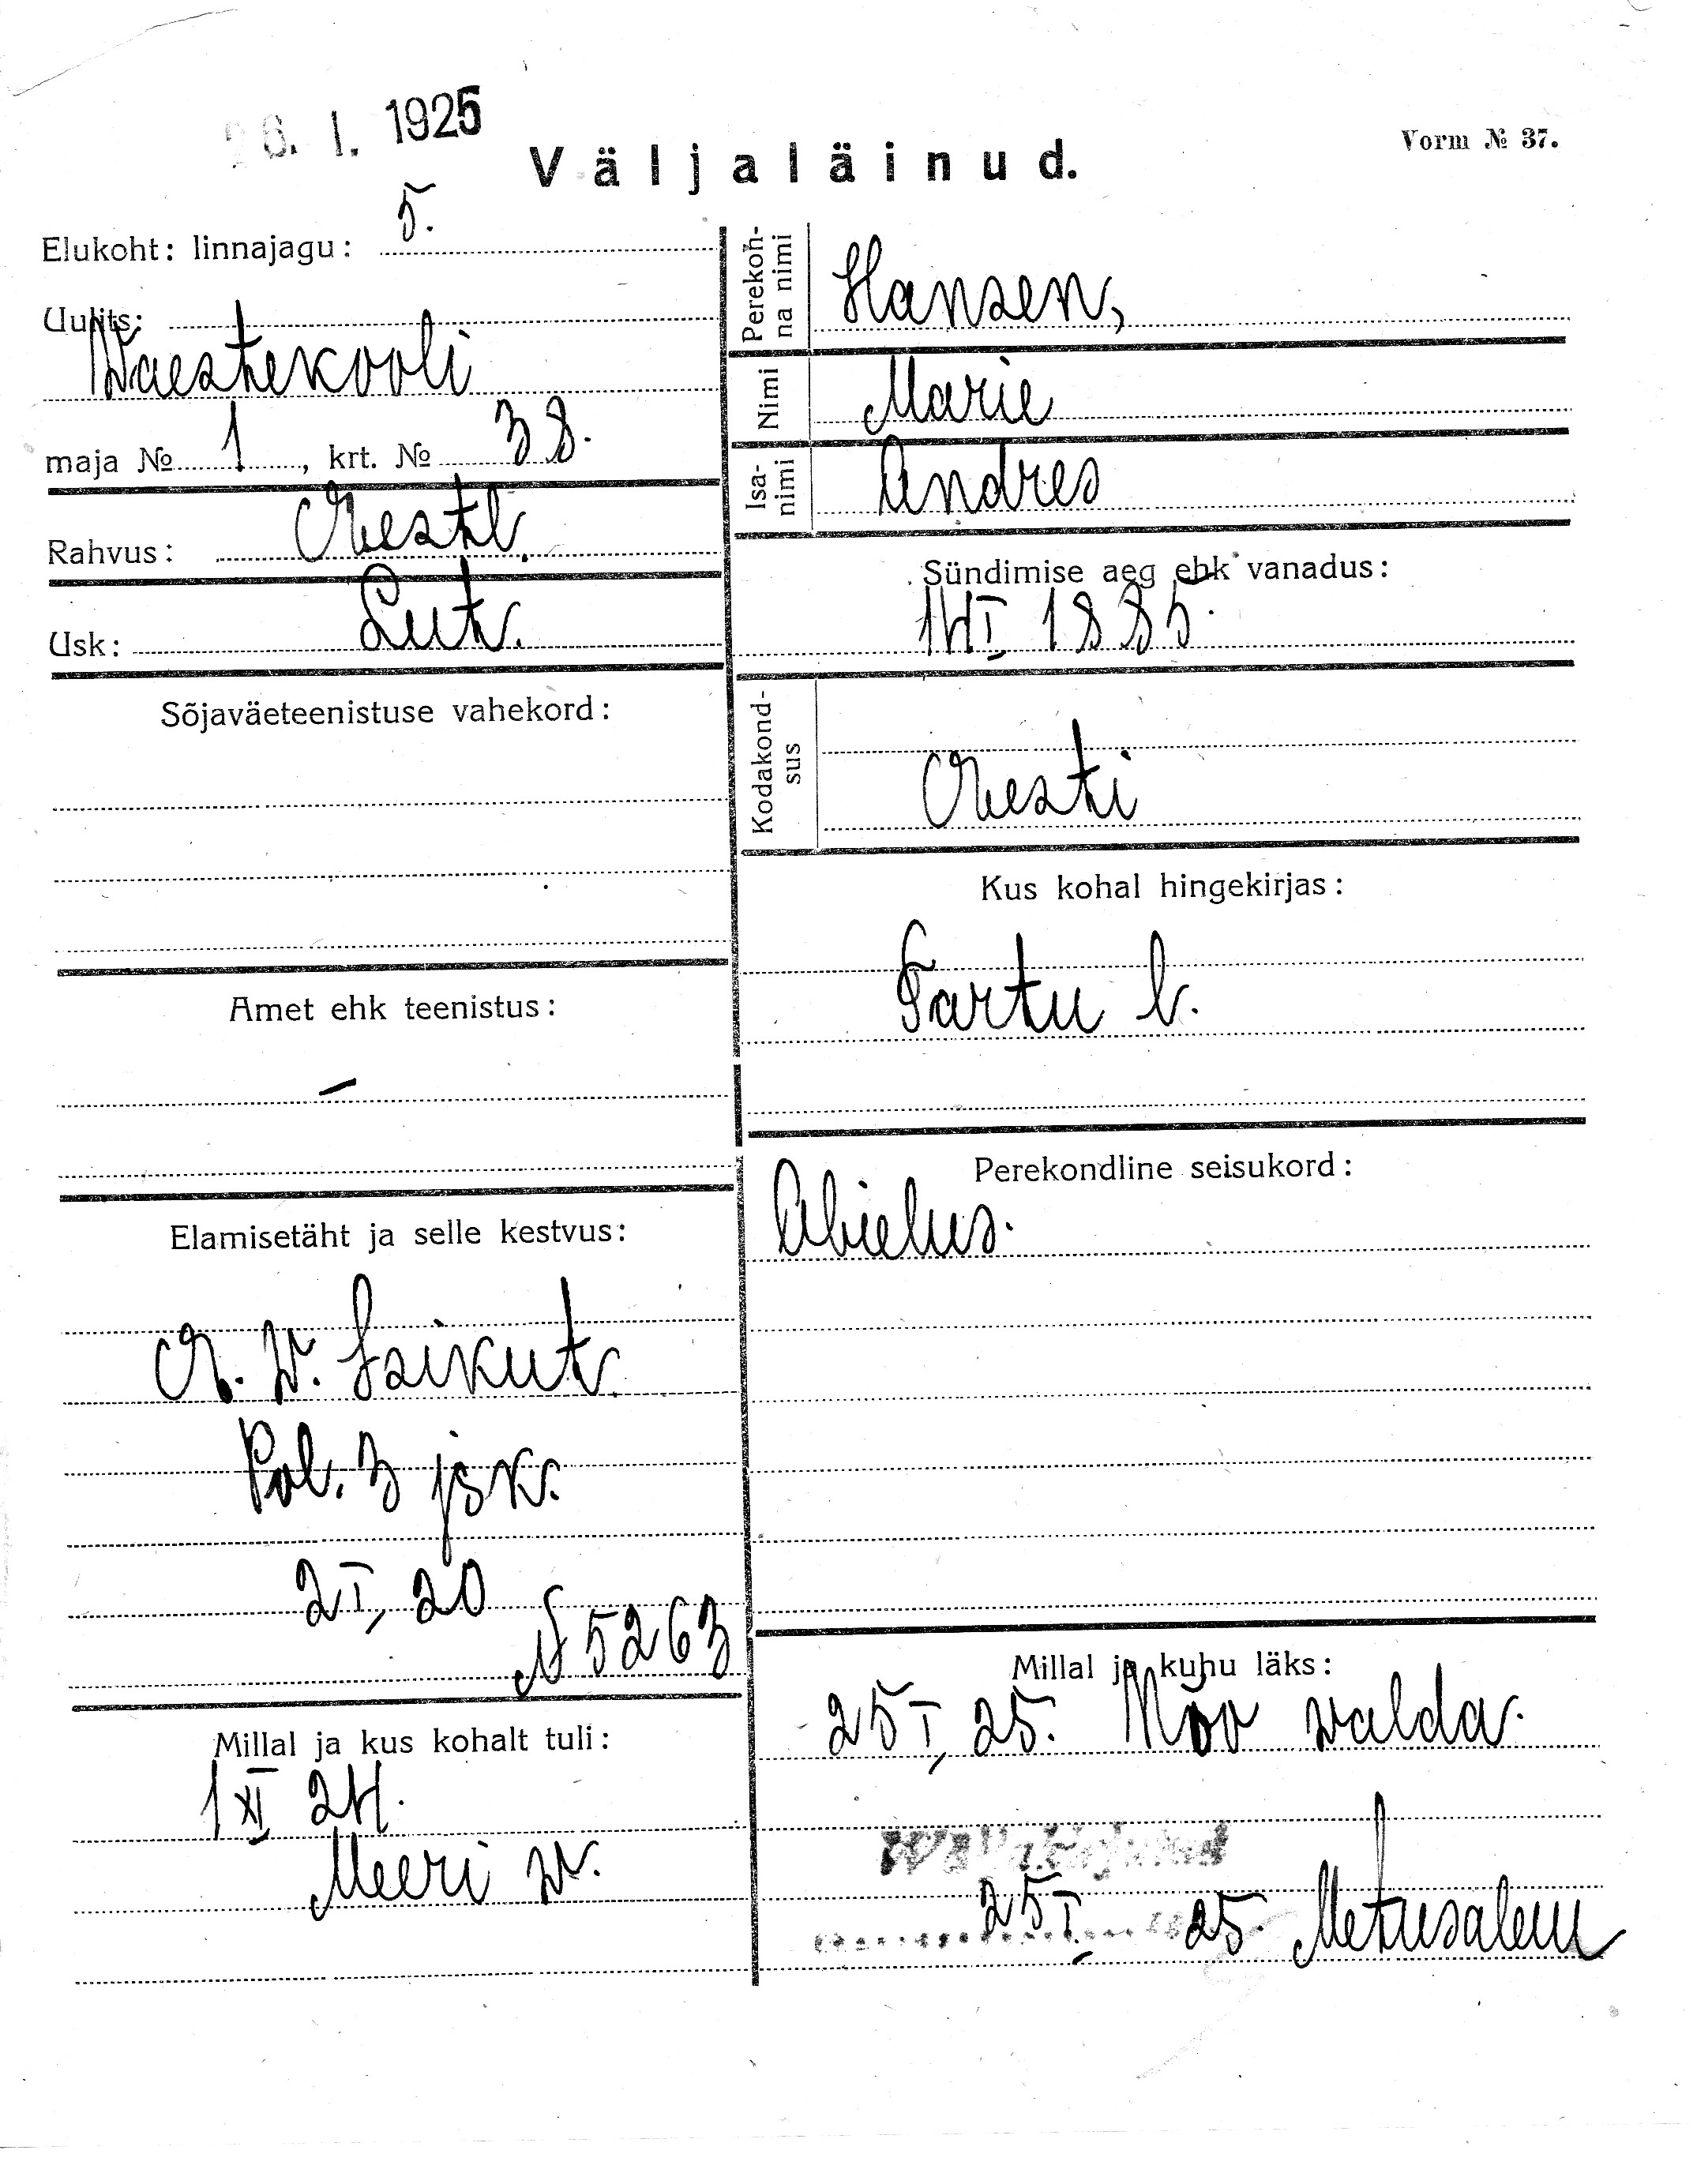 26. I. 1925
Väljaläinud.
Vorm № 37.
Elukoht: linnajagu: 5.
Uulits:
Waestekooli
maja № 1, krt. № 38.
Rahvus: Eestl.
Usk: Lut.
Sõjaväeteenistuse vahekord:
Amet ehk teenistus:
–
Elamisetäht ja selle kestvus:
E. W. Isikut.
Pol. 3 jsk.
2 I, 20
N 5263
Millal ja kus kohalt tuli:
1 XI 24.
Meeri w.
Perekoh-
na nimi
Hansen,
Nimi Marie
Isa-
nimi
Andres
Sündimise aeg ehk vanadus:
14 I 1885.
Kodakond-
sus
Eesti
Kus kohal hingekirjas:
Tartu l.
Perekondline seisukord:
Abielus.
Millal ja kuhu läks:
25 I, 25. Möo walda.
25 I 25 Metusalem